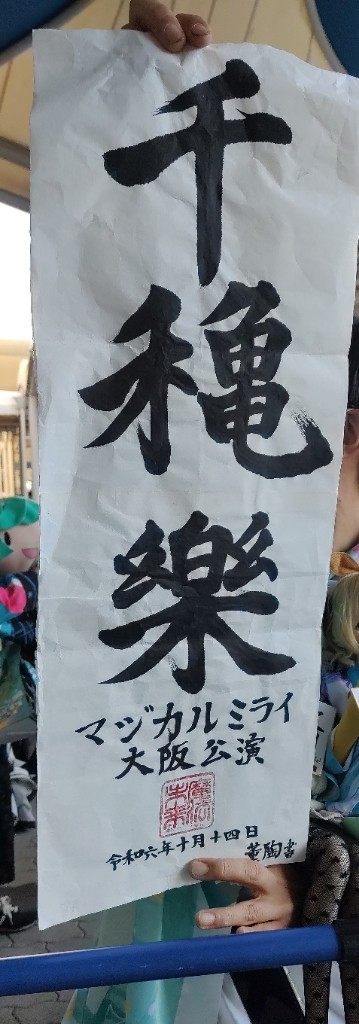 千穐樂
マジカルミライ
大阪公演
魔法
未来
令和六年十月十四日
書